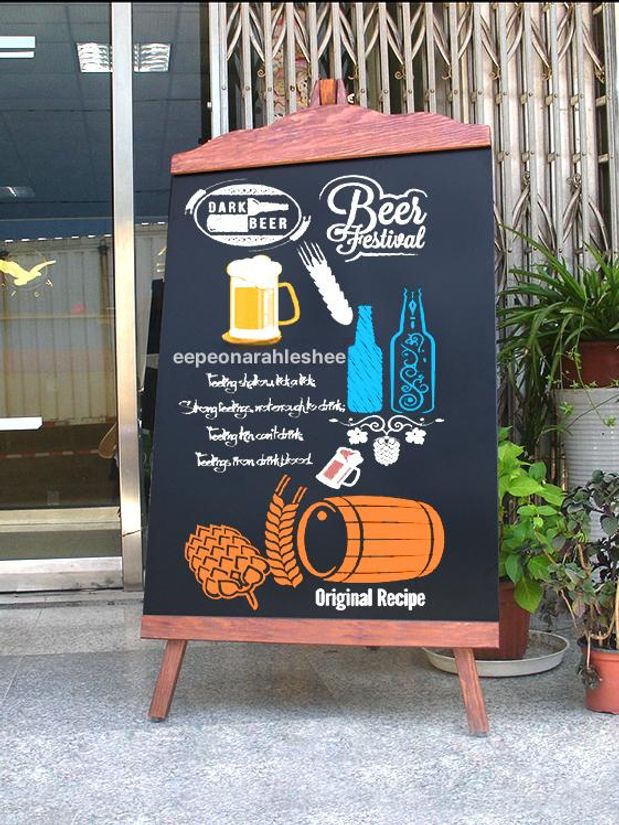 DARK
BEER
Beer
Festival
eepeonarahleshee
Feeling shallow, lick a lick;
Strong feelings, not enough to drink;
Feeling thin can't drink
Feelings iron drink blood.
Original Recipe